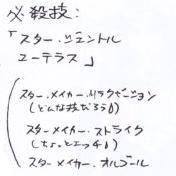 必殺技:
「スター.ジェントル
ユーテラス」
スター.メイカー.リラクゼーション
(どんな技だろう)
スターメイカー.ストライク
(ちょっとエッチ)
スター.メイカー.オルゴール